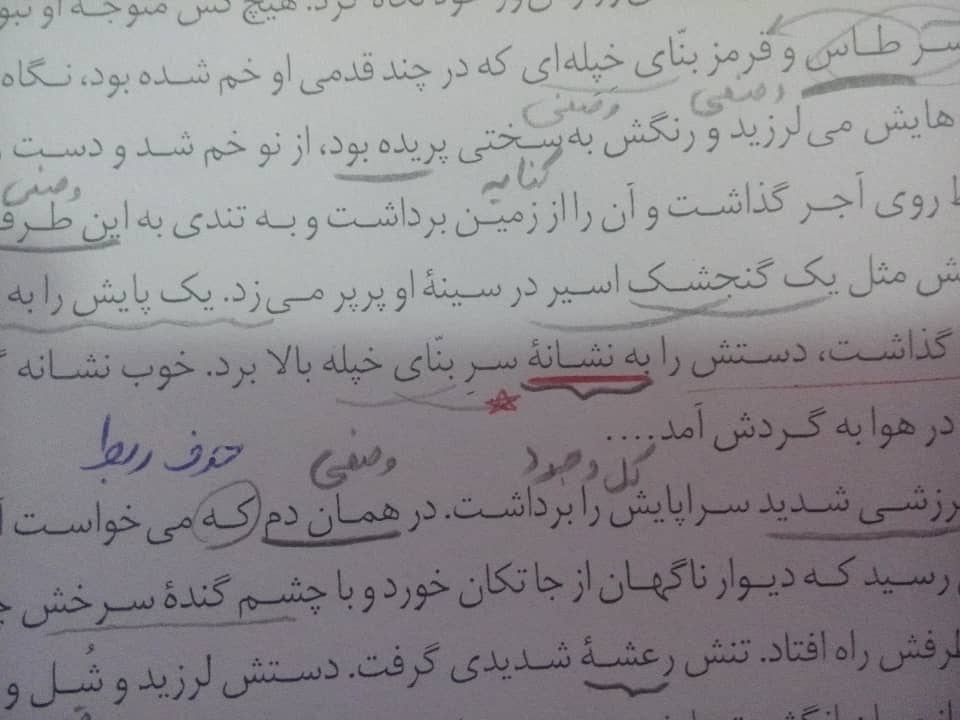 خود نگاه کرد. هیچ کس متوجه او نبو
سر طاس و قرمز بنّای خپله‌ای که در چند قدمی او خم شده بود، نگاه
وصفی وصفی
هایش می‌لرزید و رنگش به‌سختی پریده بود، از نو خم شد و دست
کنایه وصفی
روی آجر گذاشت و آن را از زمین برداشت و به تندی به این طرف
ش مثل یک گنجشک اسیر در سینهٔ او پرپر می‌زد. یک پایش را به
گذاشت، دستش را به نشانهٔ سرِ بنّای خپله بالا برد. خوب نشانه
در هوا به گردش آمد....
کل وجود وصفی حذف ربط
رزشی شدید سراپایش را برداشت. در همان دم که می‌خواست
رسید که دیوار ناگهان از جا تکان خورد و با چشم گندهٔ سرخش
طرفش راه افتاد. تنش رعشهٔ شدیدی گرفت. دستش لرزید و شُل و